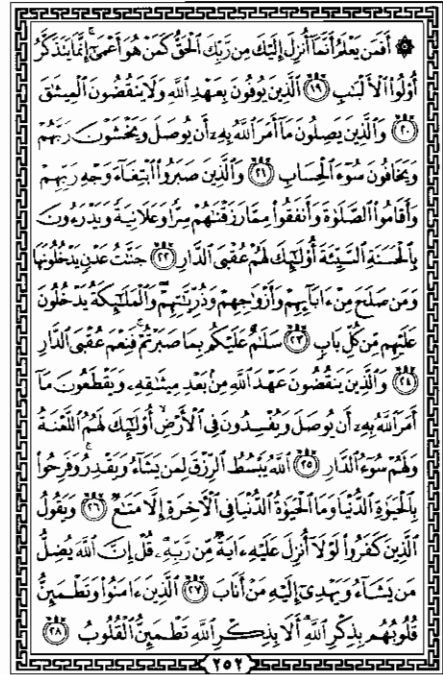 ۞ أَفَمَن يَعْلَمُ أَنَّمَآ أُنزِلَ إِلَيْكَ مِن رَّبِّكَ ٱلْحَقُّ كَمَنْ هُوَ أَعْمَىٰٓ ۚ إِنَّمَا يَتَذَكَّرُ
أُو۟لُوا۟ ٱلْأَلْبَٰبِ ١٩ ٱلَّذِينَ يُوفُونَ بِعَهْدِ ٱللَّهِ وَلَا يَنقُضُونَ ٱلْمِيثَٰقَ
٢٠ وَٱلَّذِينَ يَصِلُونَ مَآ أَمَرَ ٱللَّهُ بِهِۦٓ أَن يُوصَلَ وَيَخْشَوْنَ رَبَّهُمْ
وَيَخَافُونَ سُوٓءَ ٱلْحِسَابِ ٢١ وَٱلَّذِينَ صَبَرُوا۟ ٱبْتِغَآءَ وَجْهِ رَبِّهِمْ
وَأَقَامُوا۟ ٱلصَّلَوٰةَ وَأَنفَقُوا۟ مِمَّا رَزَقْنَٰهُمْ سِرًّا وَعَلَانِيَةً وَيَدْرَءُونَ
بِٱلْحَسَنَةِ ٱلسَّيِّئَةَ أُو۟لَٰٓئِكَ لَهُمْ عُقْبَى ٱلدَّارِ ٢٢ جَنَّٰتُ عَدْنٍ يَدْخُلُونَهَا
وَمَن صَلَحَ مِنْ ءَابَآئِهِمْ وَأَزْوَٰجِهِمْ وَذُرِّيَّٰتِهِمْ ۖ وَٱلْمَلَٰٓئِكَةُ يَدْخُلُونَ
عَلَيْهِم مِّن كُلِّ بَابٍ ٢٣ سَلَٰمٌ عَلَيْكُم بِمَا صَبَرْتُمْ ۚ فَنِعْمَ عُقْبَى ٱلدَّارِ
٢٤ وَٱلَّذِينَ يَنقُضُونَ عَهْدَ ٱللَّهِ مِنۢ بَعْدِ مِيثَٰقِهِۦ وَيَقْطَعُونَ مَآ
أَمَرَ ٱللَّهُ بِهِۦٓ أَن يُوصَلَ وَيُفْسِدُونَ فِى ٱلْأَرْضِ ۙ أُو۟لَٰٓئِكَ لَهُمُ ٱللَّعْنَةُ
وَلَهُمْ سُوٓءُ ٱلدَّارِ ٢٥ ٱللَّهُ يَبْسُطُ ٱلرِّزْقَ لِمَن يَشَآءُ وَيَقْدِرُ ۚ وَفَرِحُوا۟
بِٱلْحَيَوٰةِ ٱلدُّنْيَا وَمَا ٱلْحَيَوٰةُ ٱلدُّنْيَا فِى ٱلْءَاخِرَةِ إِلَّا مَتَٰعٌ ٢٦ وَيَقُولُ
ٱلَّذِينَ كَفَرُوا۟ لَوْلَآ أُنزِلَ عَلَيْهِ ءَايَةٌ مِّن رَّبِّهِۦ ۗ قُلْ إِنَّ ٱللَّهَ يُضِلُّ
مَن يَشَآءُ وَيَهْدِىٓ إِلَيْهِ مَنْ أَنَابَ ٢٧ ٱلَّذِينَ ءَامَنُوا۟ وَتَطْمَئِنُّ
قُلُوبُهُم بِذِكْرِ ٱللَّهِ ۗ أَلَا بِذِكْرِ ٱللَّهِ تَطْمَئِنُّ ٱلْقُلُوبُ ٢٨
٢٥٢